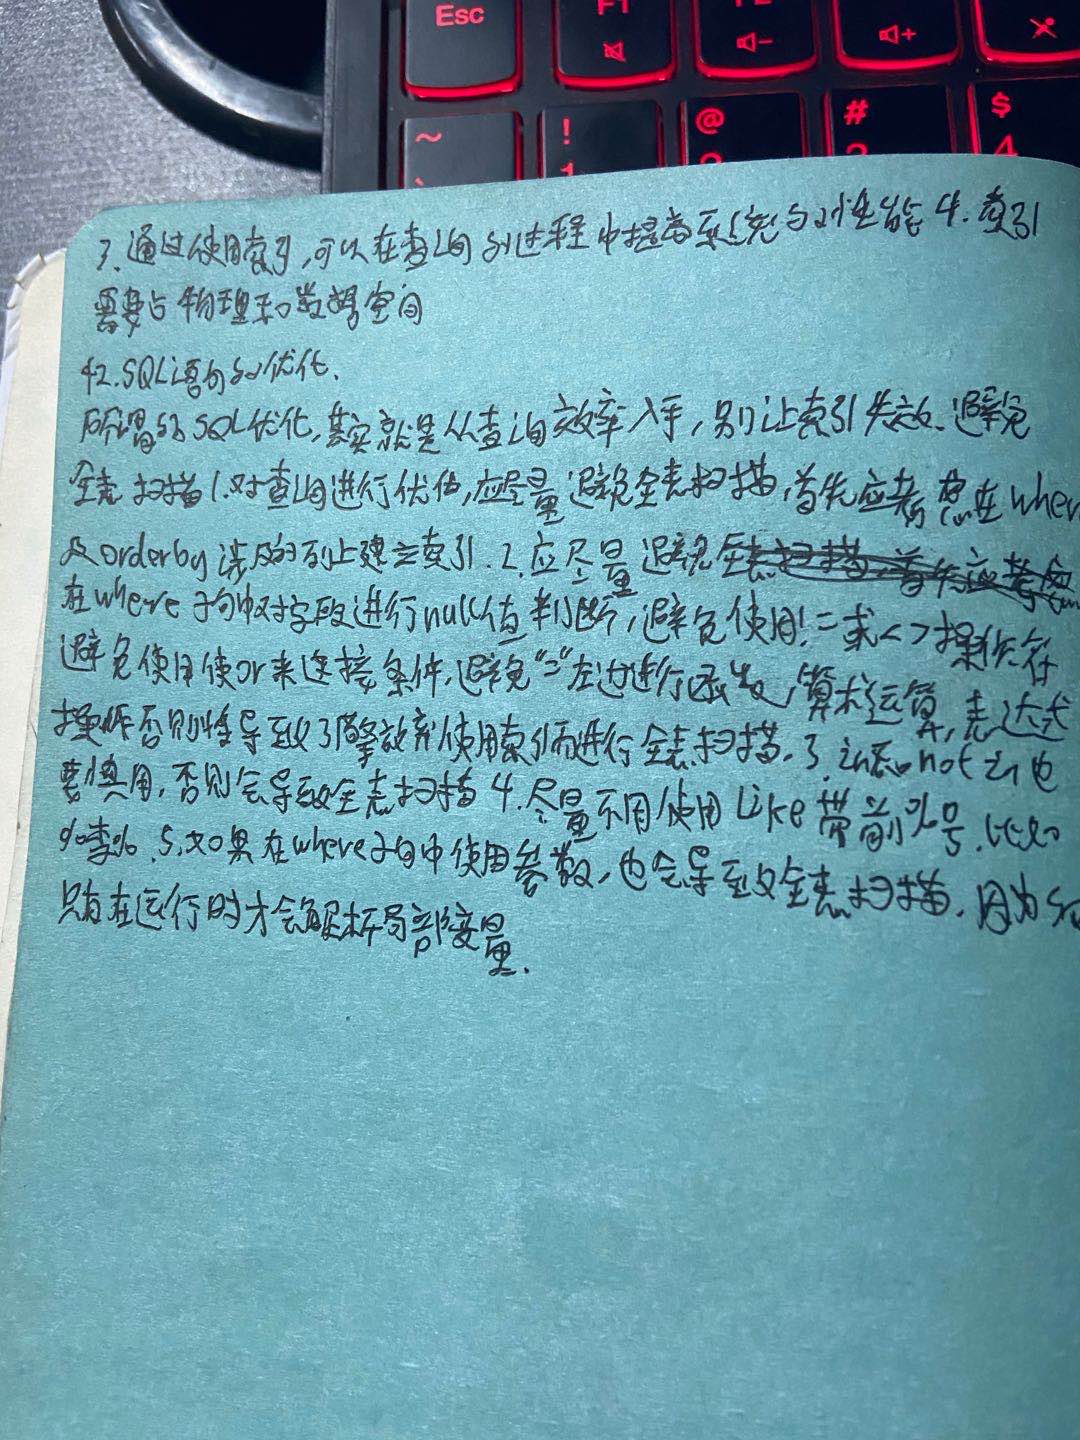 Esc
F1
~
!
1
@
#
$
4
3.通过使用索引,可以在查询的过程中提高系统的性能 4.索引
需要占物理和数据空间
42.SQL语句的优化.
所谓的SQL优化,其实就是从查询效率入手,别让索引失效.避免
全表扫描 1.对查询进行优化,应尽量避免全表扫描,首先应考虑在wher
及orderby涉及的列上建立索引.2.应尽量避免全表扫描
在where子句中对字段进行null值判断,避免使用!=或<>操作符
避免使用使or来连接条件,避免"="左边进行函数,算术运算,表达式
操作否则将导致引擎放弃使用索引而进行全表扫描.3.in和not in也
要慎用,否则会导致全表扫描 4.尽量不用使用Like带前%号.比如
%李%.5.如果在where子句中使用参数,也会导致全表扫描.因为
只有在运行时才会解析局部变量.